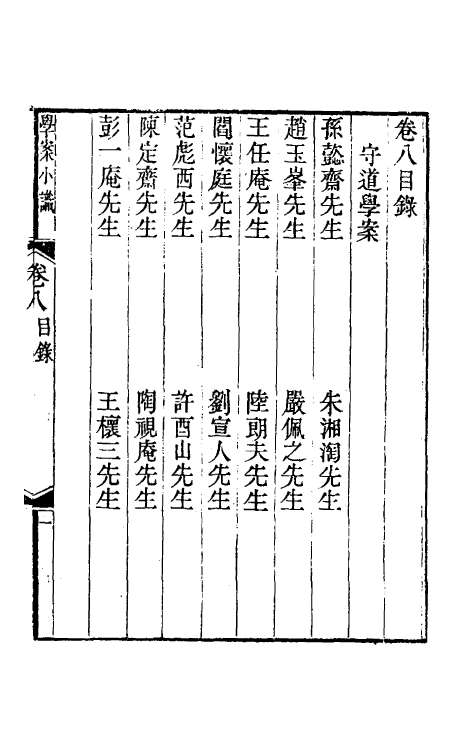 卷八目錄
守道學案
孫懿齋先生 朱湘淘先生
趙玉峯先生 嚴佩之先生
王任庵先生 陸朗夫先生
閻懷庭先生 劉宣人先生
范彪西先生 許酉山先生
陳定齋先生 陶視庵先生
彭一庵先生 王欀三先生
學案小識 卷八 目錄 一